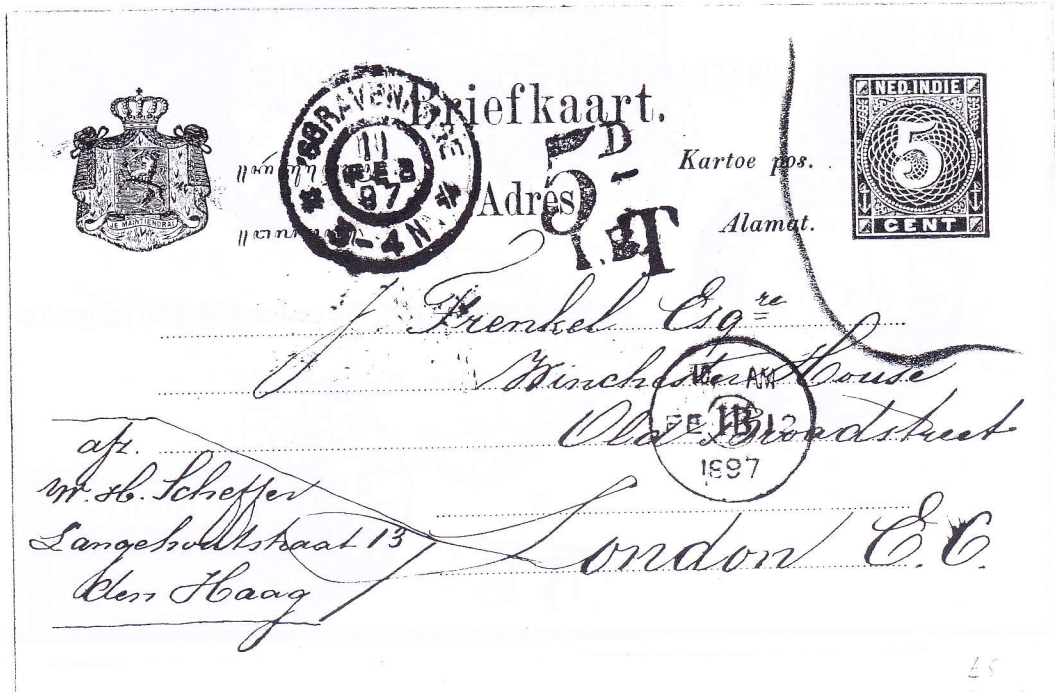 Briefkaart.
NED.INDIE
5
CENT
Kartoe pos.
Adres
Alamat.
JE MAINTIENDRAI
'SGRAVENHAGE
11
FEB
97
3-4N
5D
T
J. Frenkel Esqre
Winchester House
Old Broadstreet
London E.C.
AM
FE 12
1897
afz.
Scheffer
Langehoutstraat 13
den Haag